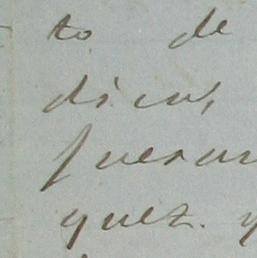 to de
dicw,
fueron
quez. y